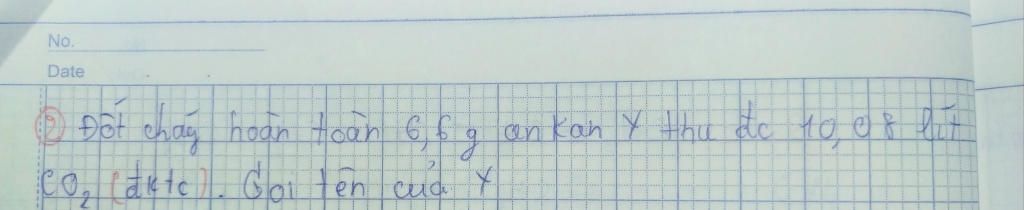 No.
Date
② Đốt cháy hoàn toàn 6,6 g ankan Y thu đc 10,08 lít
CO₂ (đktc). Gọi tên của Y